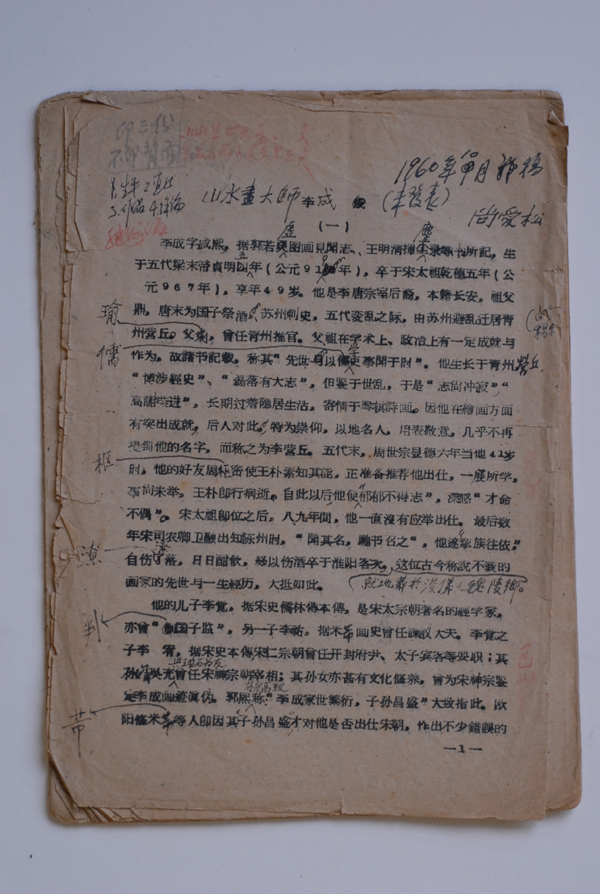 1960年 初稿
(未發表)
山水畫大師李成
尚愛松
(一)
李成字咸熙，据郭若虛图画見聞志、王明清揮麈录等书所記，生
于五代梁末帝貞明五年（公元919年），卒于宋太祖乾德五年（公
元967年），享年49岁。他是李唐宗室后裔，本籍长安，祖父
鼎，唐末为国子祭酒、苏州刺史，五代变乱之际，由苏州避乱迁居青
州营丘。父瑜，曾任青州推官。父祖在学术上、政治上有一定成就与
作为，故諸书記載，称其“先世 以儒 事聞于时”。他生长于青州营丘，
“博涉經史”、“磊落有大志”，但鉴于世乱，于是“志尙冲寂”，“
高蹈 进”，长期过着隐居生活，寄情于琴棋詩画。因他在繪画方面
有突出成就，后人对此，特为崇仰，以地名人，用表敬意，几乎不再
提到他的名字，而称之为李营丘。五代末，周世宗显德六年当他41岁
时，他的好友周枢密使王朴素知其能，正准备推荐他出仕，一展所学，
事尙未举，王朴即行病逝。自此以后他便“郁郁不得志”，深感“才命
不偶”。宋太祖即位之后，八九年間，他一直沒有应举出仕。最后数
年宋司农卿卫融出知陈州时，“聞其名，馳书召之”，他遂挈族往依，
自伤潦落，日日酣飲，終以伤酒卒于淮阳客次，这位古今称說不衰的
画家的先世与一生經历，大抵如此。
就地葬於浚儀之魏陵鄉。
他的儿子李覺，据宋史儒林傳本傳，是宋太宗朝著名的經学家，
亦曾“判国子监”，另一子李祐，据米芾画史曾任諫議大夫。李覺之
子李宥，据宋史本傳宋仁宗朝曾任开封府尹、太子宾客等要职；其
曾任宋神宗朝宰相；其孙女亦甚有文化修养，曾为宋神宗鉴
定李成画迹眞伪，郭熙称“李成家世蕃衍，子孙昌盛”大致指此。欧
阳修米芾等人即因其子孙昌盛才对他是否出仕宋朝，作出不少錯誤的
瑜
儒
枢
潦
判
芾
—1—